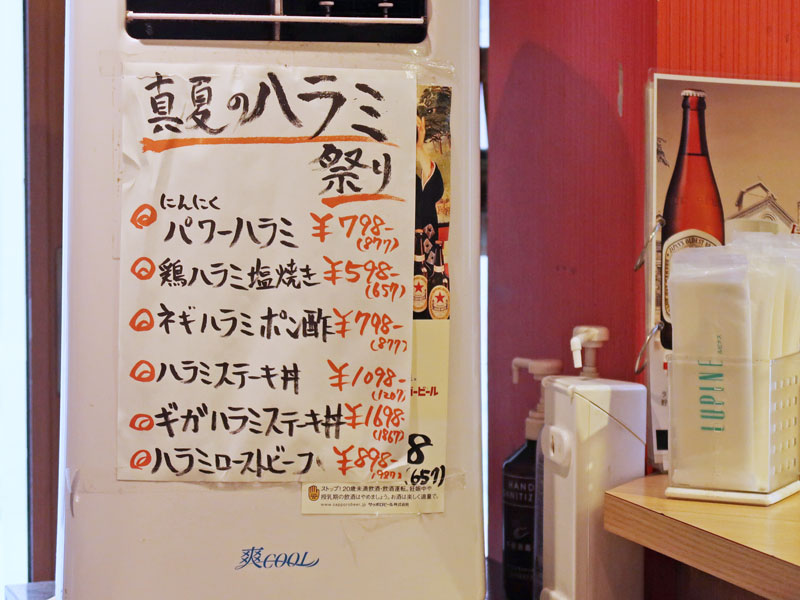 真夏のハラミ
祭り
にんにく
パワーハラミ ¥798-
(877)
鶏ハラミ塩焼き ¥598-
(657)
ネギハラミポン酢 ¥798-
(877)
ハラミステーキ丼 ¥1098-
(1207)
ギガハラミステーキ丼 ¥1698-
(1867)
ハラミローストビーフ ¥898-
(987)
8
(657)
ービール
ストップ!20歳未満飲酒・飲酒運転。妊娠中や
授乳期の飲酒はやめましょう。お酒は楽しく適量で。
www.sapporobeer.jp サッポロビール株式会社
爽COOL
LUPINE
HAND
SANITIZ